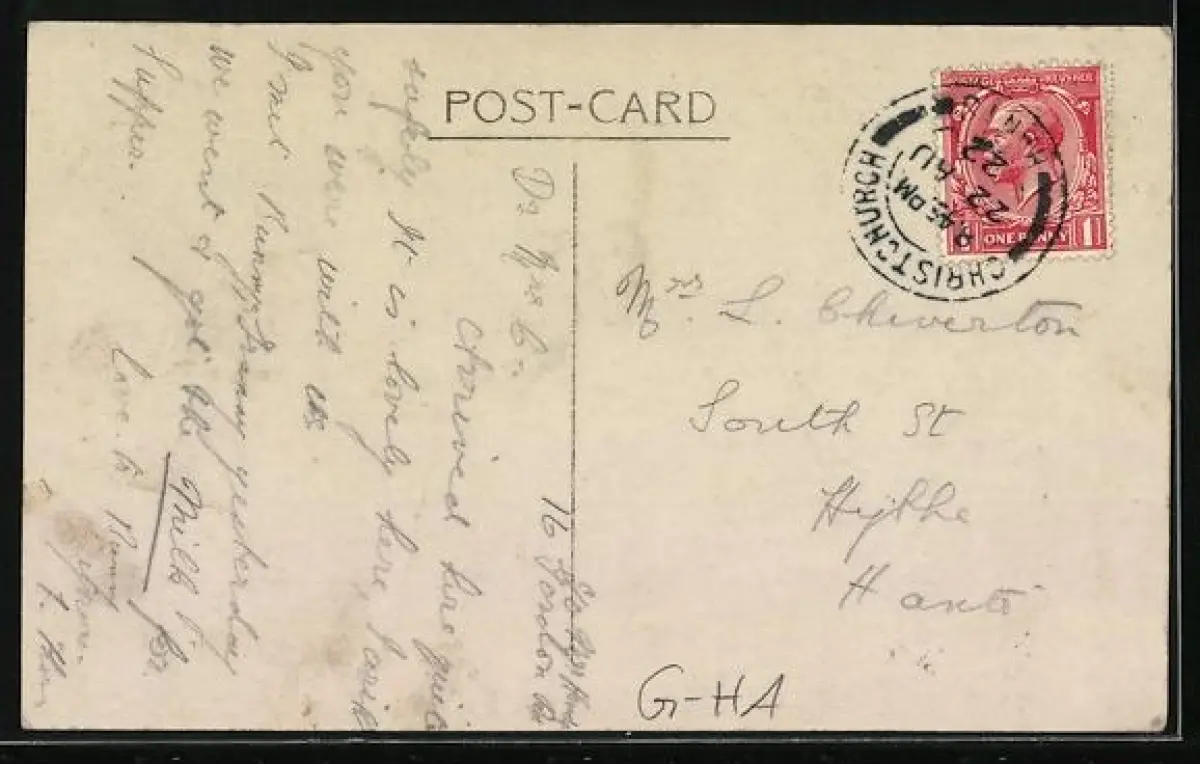 POST-CARD
CHRISTCHURCH
8.45 PM
22 AU
22
ONE PENNY
Mrs. L. Cheverton
South St
Hythe
Hants
G-HA
16 London Rd
Dr Mrs C-
Arrived here quite
safely It is lovely here, I wish
you were with us.
I met yesterday
we went & got the Milk for
Supper.
Love to